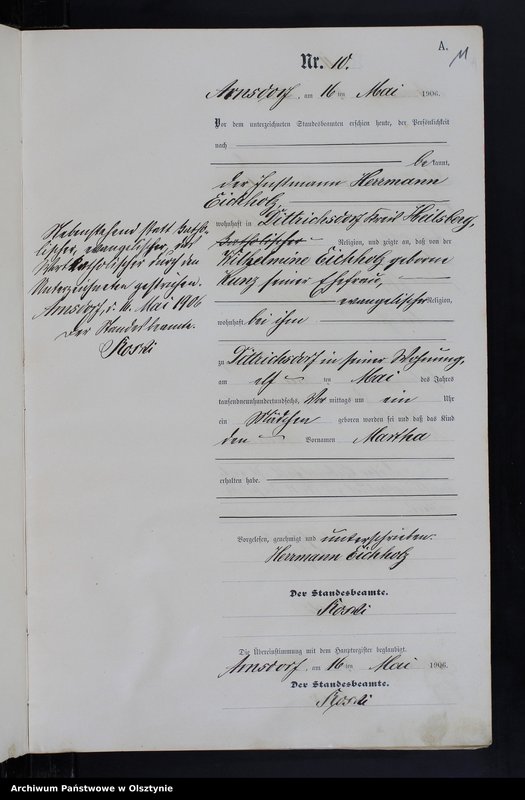 A.
11
Nr. 10.
Arnsdorf, am 16 ten Mai 1906.
Vor dem unterzeichneten Standesbeamten erschien heute, der Persönlichkeit
nach
bekannt,
der Instmann Herrmann
Eichholz,
wohnhaft in Dittrichsdorf Kreis Heilsberg,
katholischer Religion, und zeigte an, daß von der
Wilhelmine Eichholz geborne
Kunz seiner Ehefrau,
evangelischer Religion,
wohnhaft bei ihm
zu Dittrichsdorf in seiner Wohnung,
am elf ten Mai des Jahres
tausendneunhundertundsechs, Vor mittags um ein Uhr
ein Mädchen geboren worden sei und daß das Kind
den Vornamen Martha
erhalten habe.
Vorgelesen, genehmigt und unterschrieben.
Herrmann Eichholz
Der Standesbeamte.
Die Übereinstimmung mit dem Hauptregister beglaubigt.
Arnsdorf, am 16 ten Mai 1906.
Der Standesbeamte.
Nebenstehend statt katho-
lischer, evangelischer, das
Wort katholischer durch den
Unterzeichneten gestrichen.
Arnsdorf, d. 16. Mai 1906
Der Standesbeamte.
Archiwum Państwowe w Olsztynie